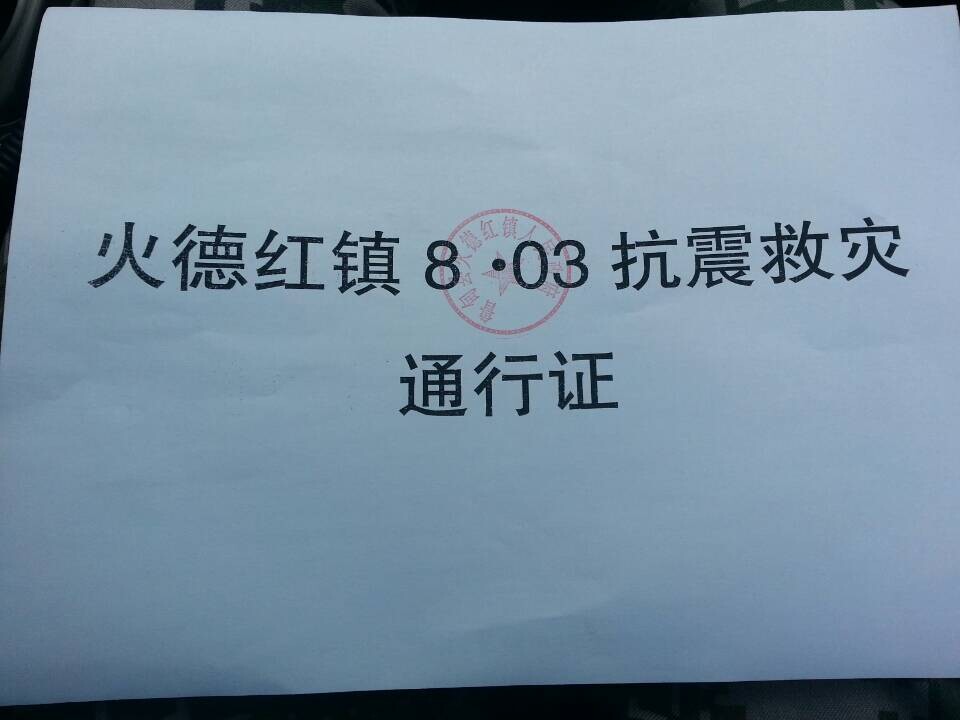 火德红镇8·03抗震救灾
通行证
鲁甸县火德红镇人民政府